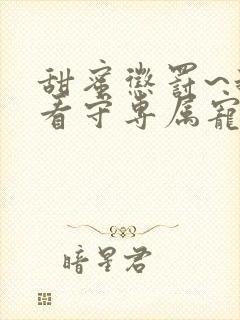 甜蜜懲罰~
看守専属寵
暗星君